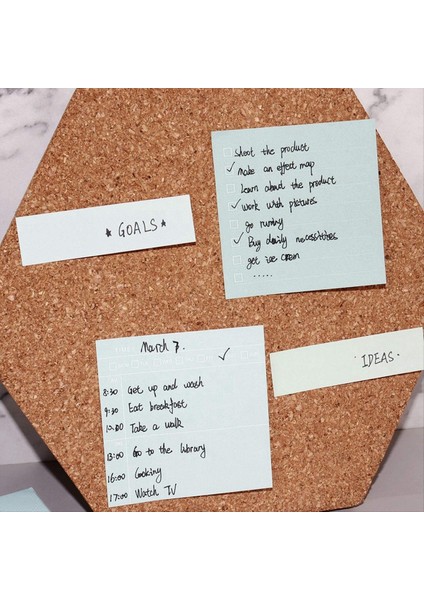 * GOALS *
Shoot the product
✓ Make an effect map
learn about the product
✓ work with pictures
go runing
✓ Buy daily necessities
get ice cream
.....
March 7.
✓
8:30 Get up and wash
9:30 Eat breakfast
10:00 Take a walk
13:00 Go to the library
16:00 Cooking
17:00 Watch TV
· IDEAS ·